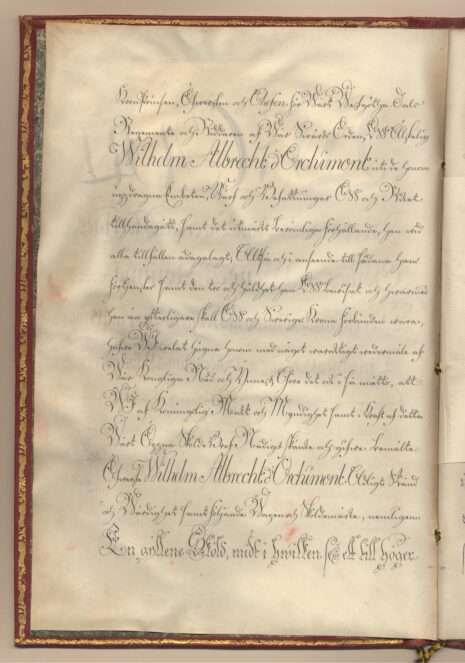 Kronprinsen, Öfversten och Chefen för Wårt Westgötha Dals
Regemente och Riddaren af Wår Swärds Orden, Oss Elskelig
Wilhelm Albrecht d'Orchimont uti de honom
updragne Embeten, Wärf och Befattningar Oss och Riket
tillhandagått, samt det utmärkt berömliga förhållande, han wid
alla tillfällen ådagalagt; Altså och i anseende till sådana hans
förtjenster samt den tro och huldhet han Oss bewisat och hwarmed
han än ytterligare skall Oss och Sweriges Krona förbunden wara,
hafwe Wi welat hugna honom med något wärdeligt wedermäle af
Wår Kongliga Nåd och Ynnest; Göre det ock i så matto, att
Wi af Konungslig Makt och Myndighet samt i Kraft af detta
Wårt Öppna Sköldebref Nådigst skänke och gifwe bemälte
Öfwerste Wilhelm Albrecht d'Orchimont Adeligt Stånd
och Wärdighet samt följande Wapen och Sköldemärke, nemligen:
En gyllene Sköld, midt i hwilken ses ett till höger